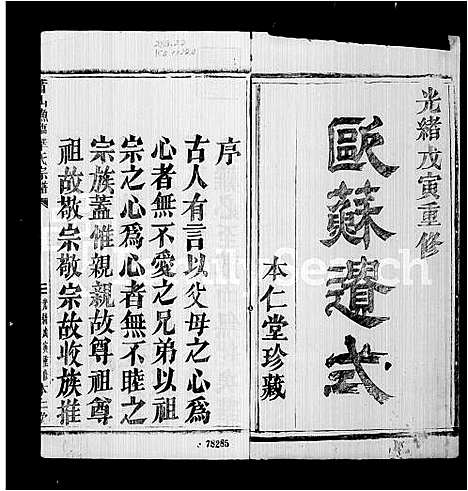 光緒戊寅重修
歐蘇遺式
本仁堂珍藏
序
古人有言以父母之心爲
心者無不愛之兄弟以祖
宗之心爲心者無不睦之
宗族蓋惟親親故尊祖尊
祖故敬宗敬宗故收族推
氏宗譜
光緒戊寅重修
78265
FamilySearch